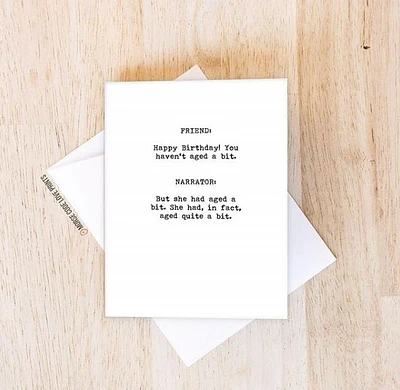 FRIEND:
Happy Birthday! You
haven't aged a bit.
NARRATOR:
But she had aged a
bit. She had, in fact,
aged quite a bit.
@MORSE CODE LOVE PRINTS